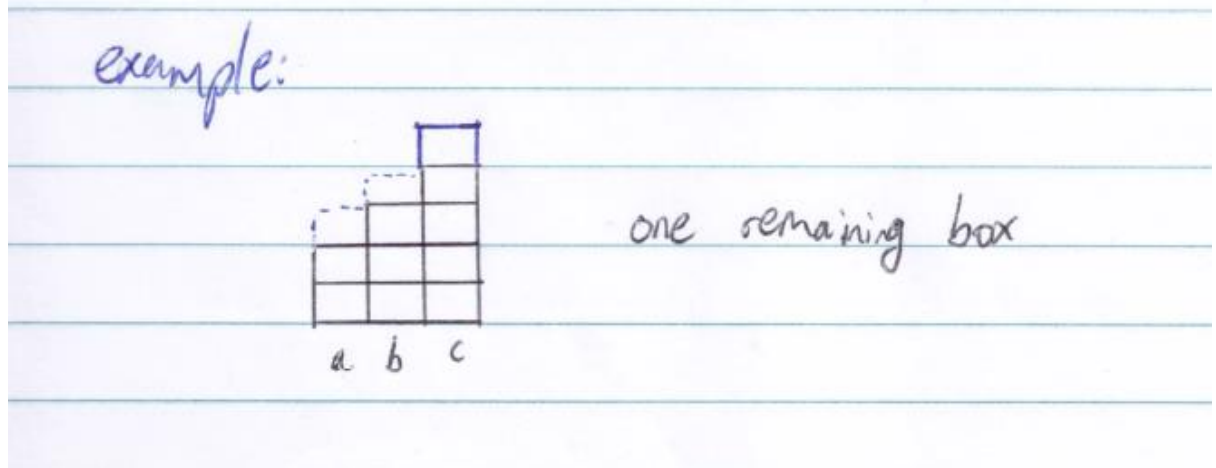 example:
one remaining box
a b c